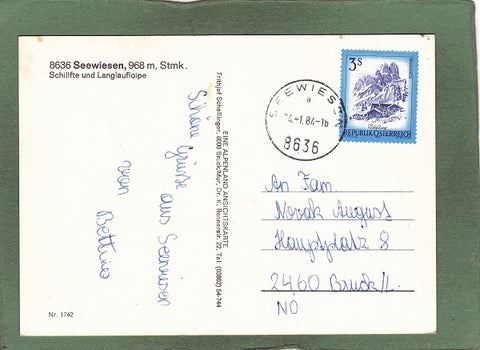 8636 Seewiesen, 968 m, Stmk.
Schilifte und Langlaufloipe
Schöne Grüße aus Seewiesen
von Bettina
Nr. 1742
EINE ALPENLAND ANSICHTSKARTE
Frithjof Schellinger, 8600 Bruck/Mur, Dr. K. Rennerstr. 22, Tel. (03862) 54-744
SEEWIESEN
a
-1.84-16
8636
3S
REPUBLIK ÖSTERREICH
An Fam.
Novak August
Hauptplatz 8
2460 Bruck/L.
NÖ